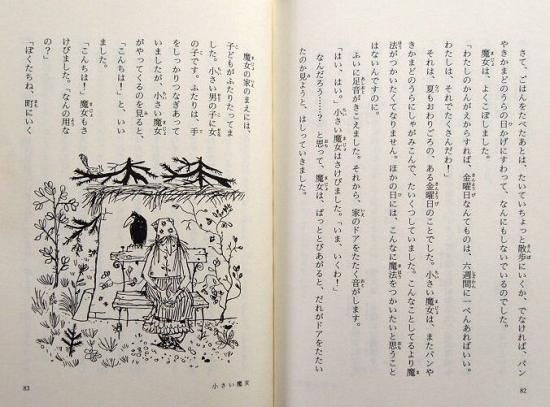 さて、ごはんをたべたあとは、たいていちょっと散歩にいくか、でなければ、パン
やきかまどのうらの日かげにすわって、なんにもしないでいるのでした。
魔女は、よくこぼしました。
「わたしのかんがえからすれば、金曜日なんてものは、六週間に一ぺんあればいい。
わたしは、それでたくさんだわ！」
それは、夏もおわりごろの、ある金曜日のことでした。小さい魔女は、またパンや
きかまどのうらにしゃがみこんで、たいくつしていました。こんなことしてるより魔
法がつかいたくてなりません。ほかの日には、こんなに魔法をつかいたいと思うこと
はないんですのに。
ふいに足音がきこえました。それから、家のドアをたたく音がします。
「はい、はい！」小さい魔女はさけびました。「いま、いくわ！」
なんだろう……？ と思って、魔女は、ぱっととびあがると、だれがドアをたたい
たのか見ようと、はしっていきました。
82
魔女の家のまえには、
子どもがふたりたってま
した。小さい男の子に女
の子です。ふたりは、手
をしっかりつなぎあって
いましたが、小さい魔女
がやってくるのを見ると、
「こんちは！」と、いい
ました。
「こんちは！」魔女もさ
けびました。「なんの用な
の？」
「ぼくたちね、町にいく
小さい魔女
83